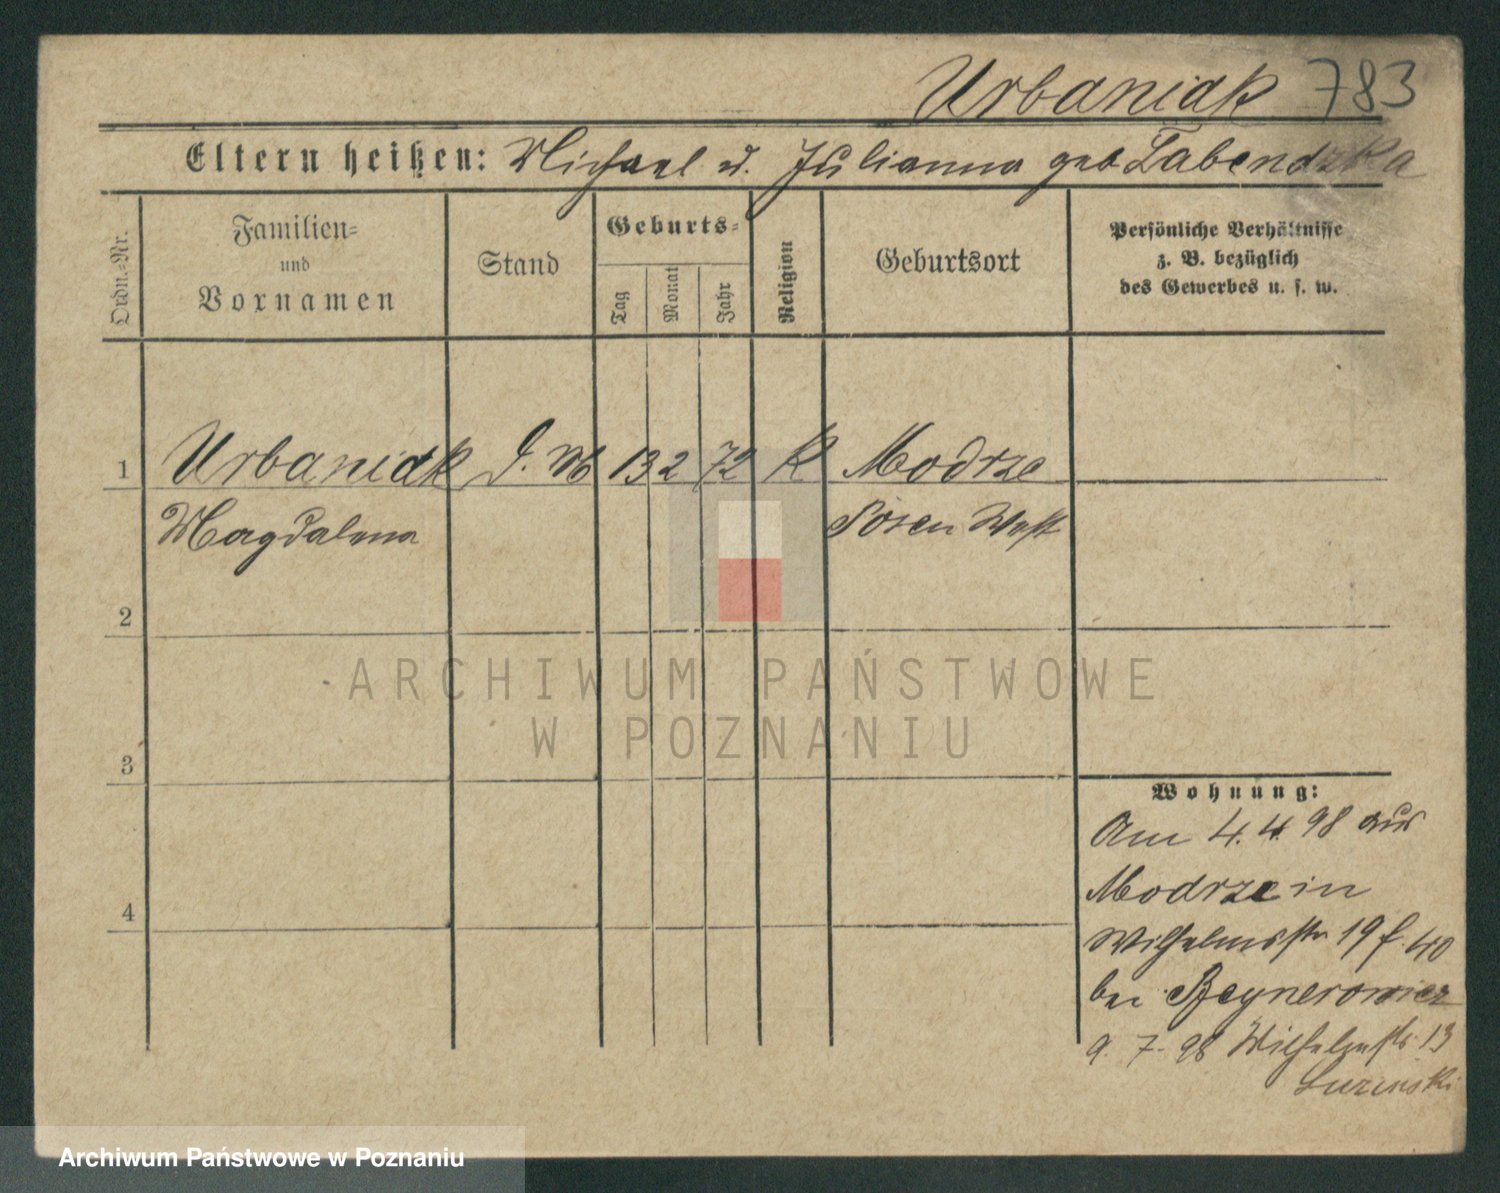 Urbaniak 783
Eltern heißen: Michael u. Julianna geb Labendzka
Ordn.-Nr.
Familien-
und
Vornamen
Stand
Geburts-
Tag
Monat
Jahr
Religion
Geburtsort
Persönliche Verhältnisse
z. B. bezüglich
des Gewerbes u. s. w.
1 Urbaniak D. M 13 2 72 K Modrze
Magdalena Posen West
2
3
4
Wohnung:
Am 4.4.98 aus
Modrze in
Wilhelmsstr 19 f. 40
bei
9. 7. 98 Wilhelmstr. 13
ARCHIWUM PAŃSTWOWE
W POZNANIU
Archiwum Państwowe w Poznaniu